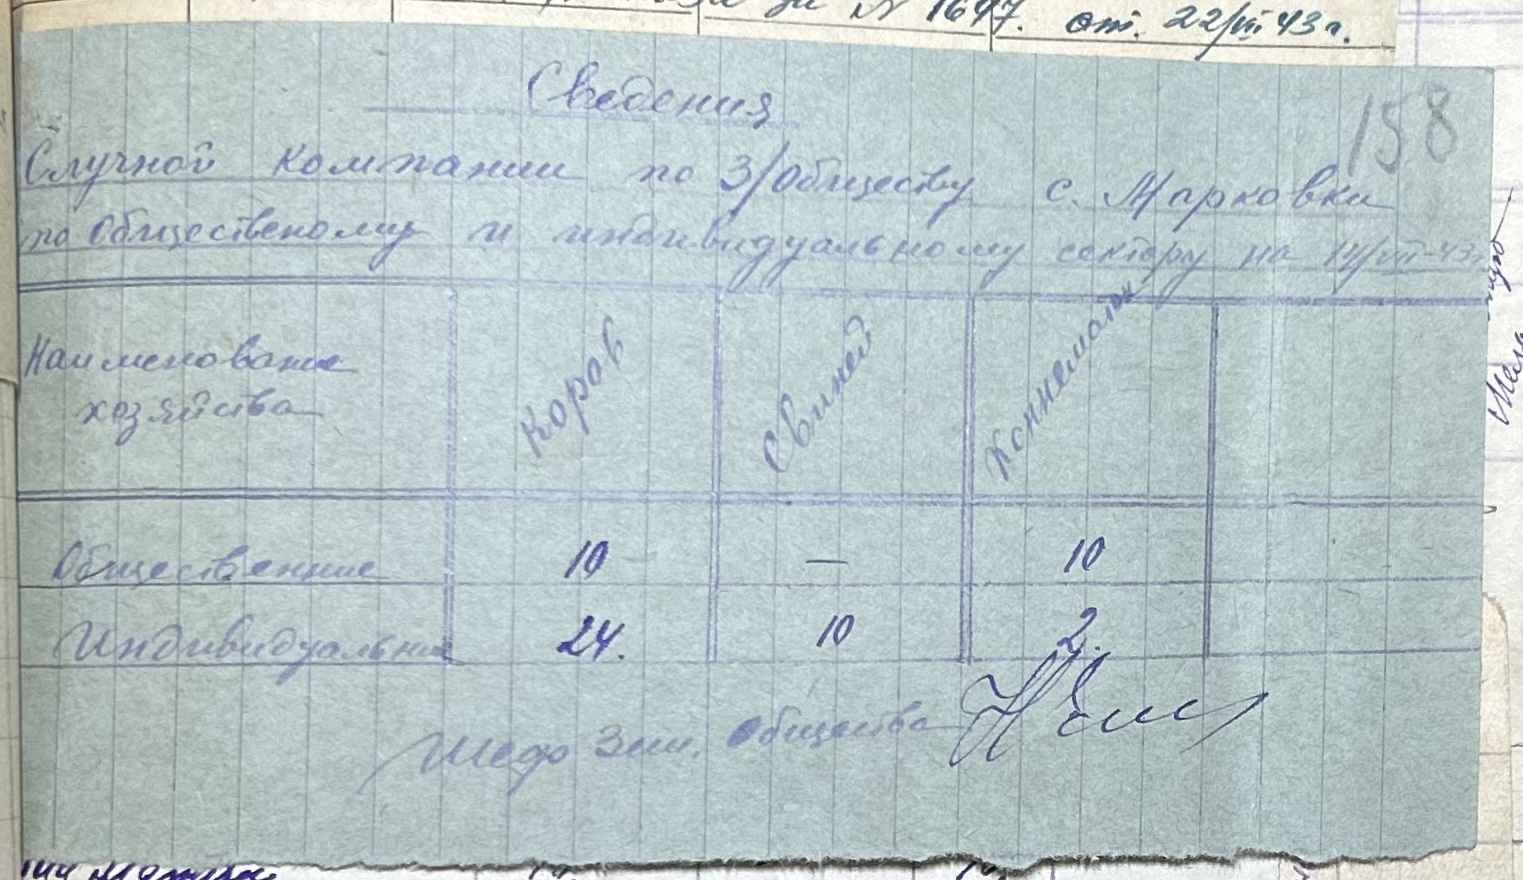 за № 1647. от. 22/VII 43 г.
158
Сведения
Случной компании по З/Обществу с. Марковки
по Общественому и индивидуальному сектору на 14/VII-43г
Наименование хозяйства
Коров
Свиней
Коннематок
Общественние 10 — 10
Индивидуальние 24. 10 2.
Шеф Зем. Общества